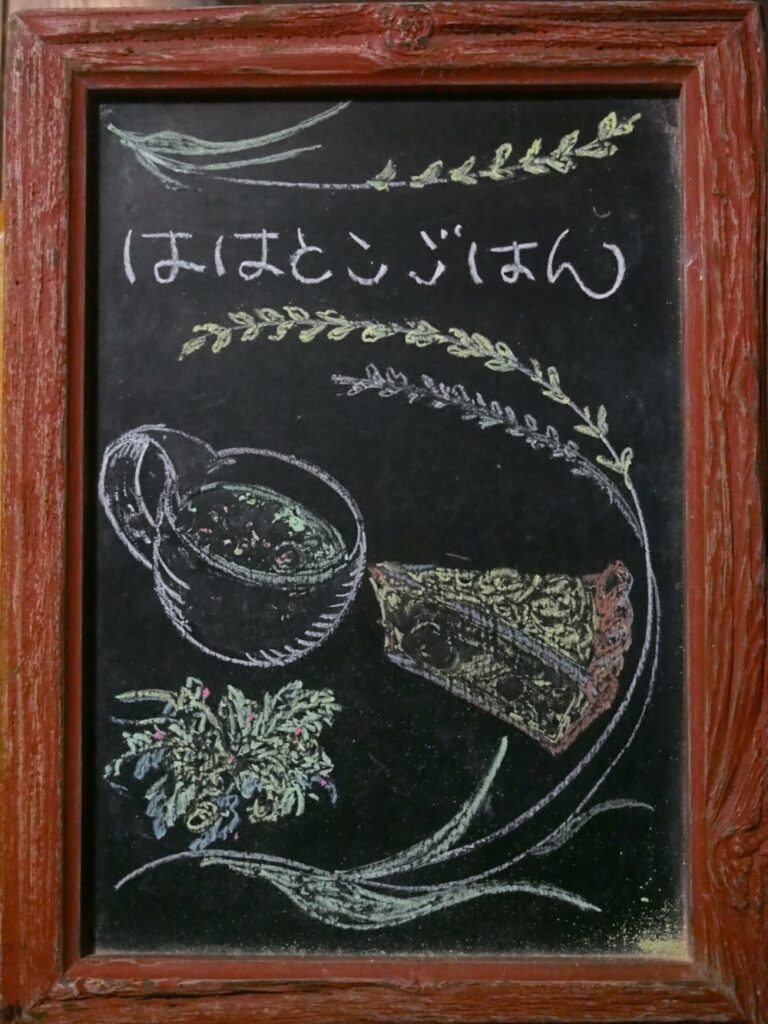 ははとこごはん